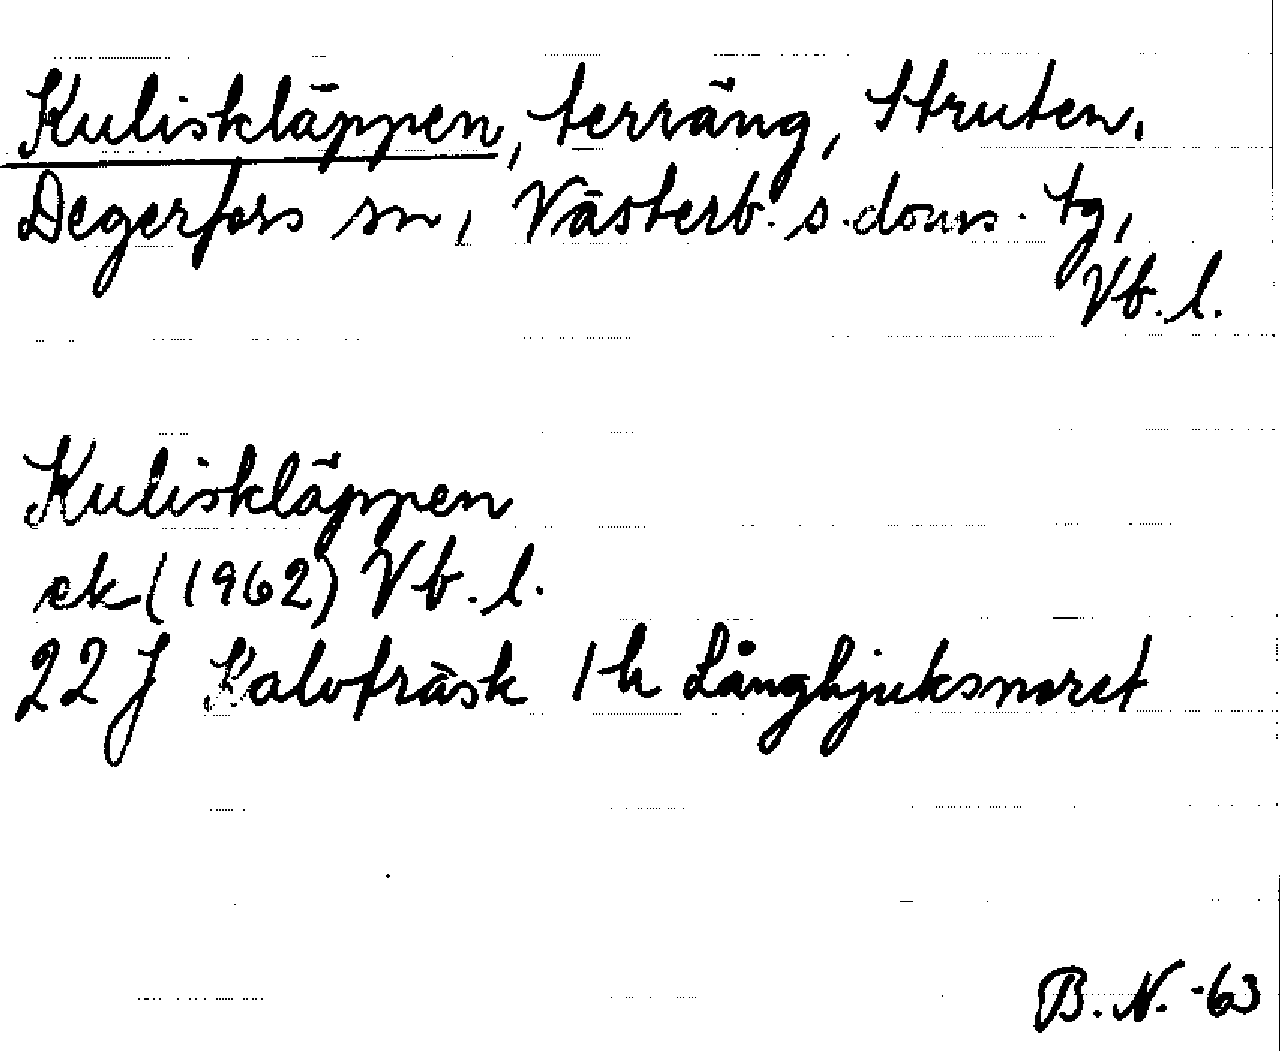 Kuliskläppen, terräng, Struten,
Degerfors sn, Västerb. s. doms. tg,
Vb. l.
Kuliskläppen
ek (1962) Vb. l.
22 J Kalvträsk 1 h Långhjuksnoret
B. N. -63